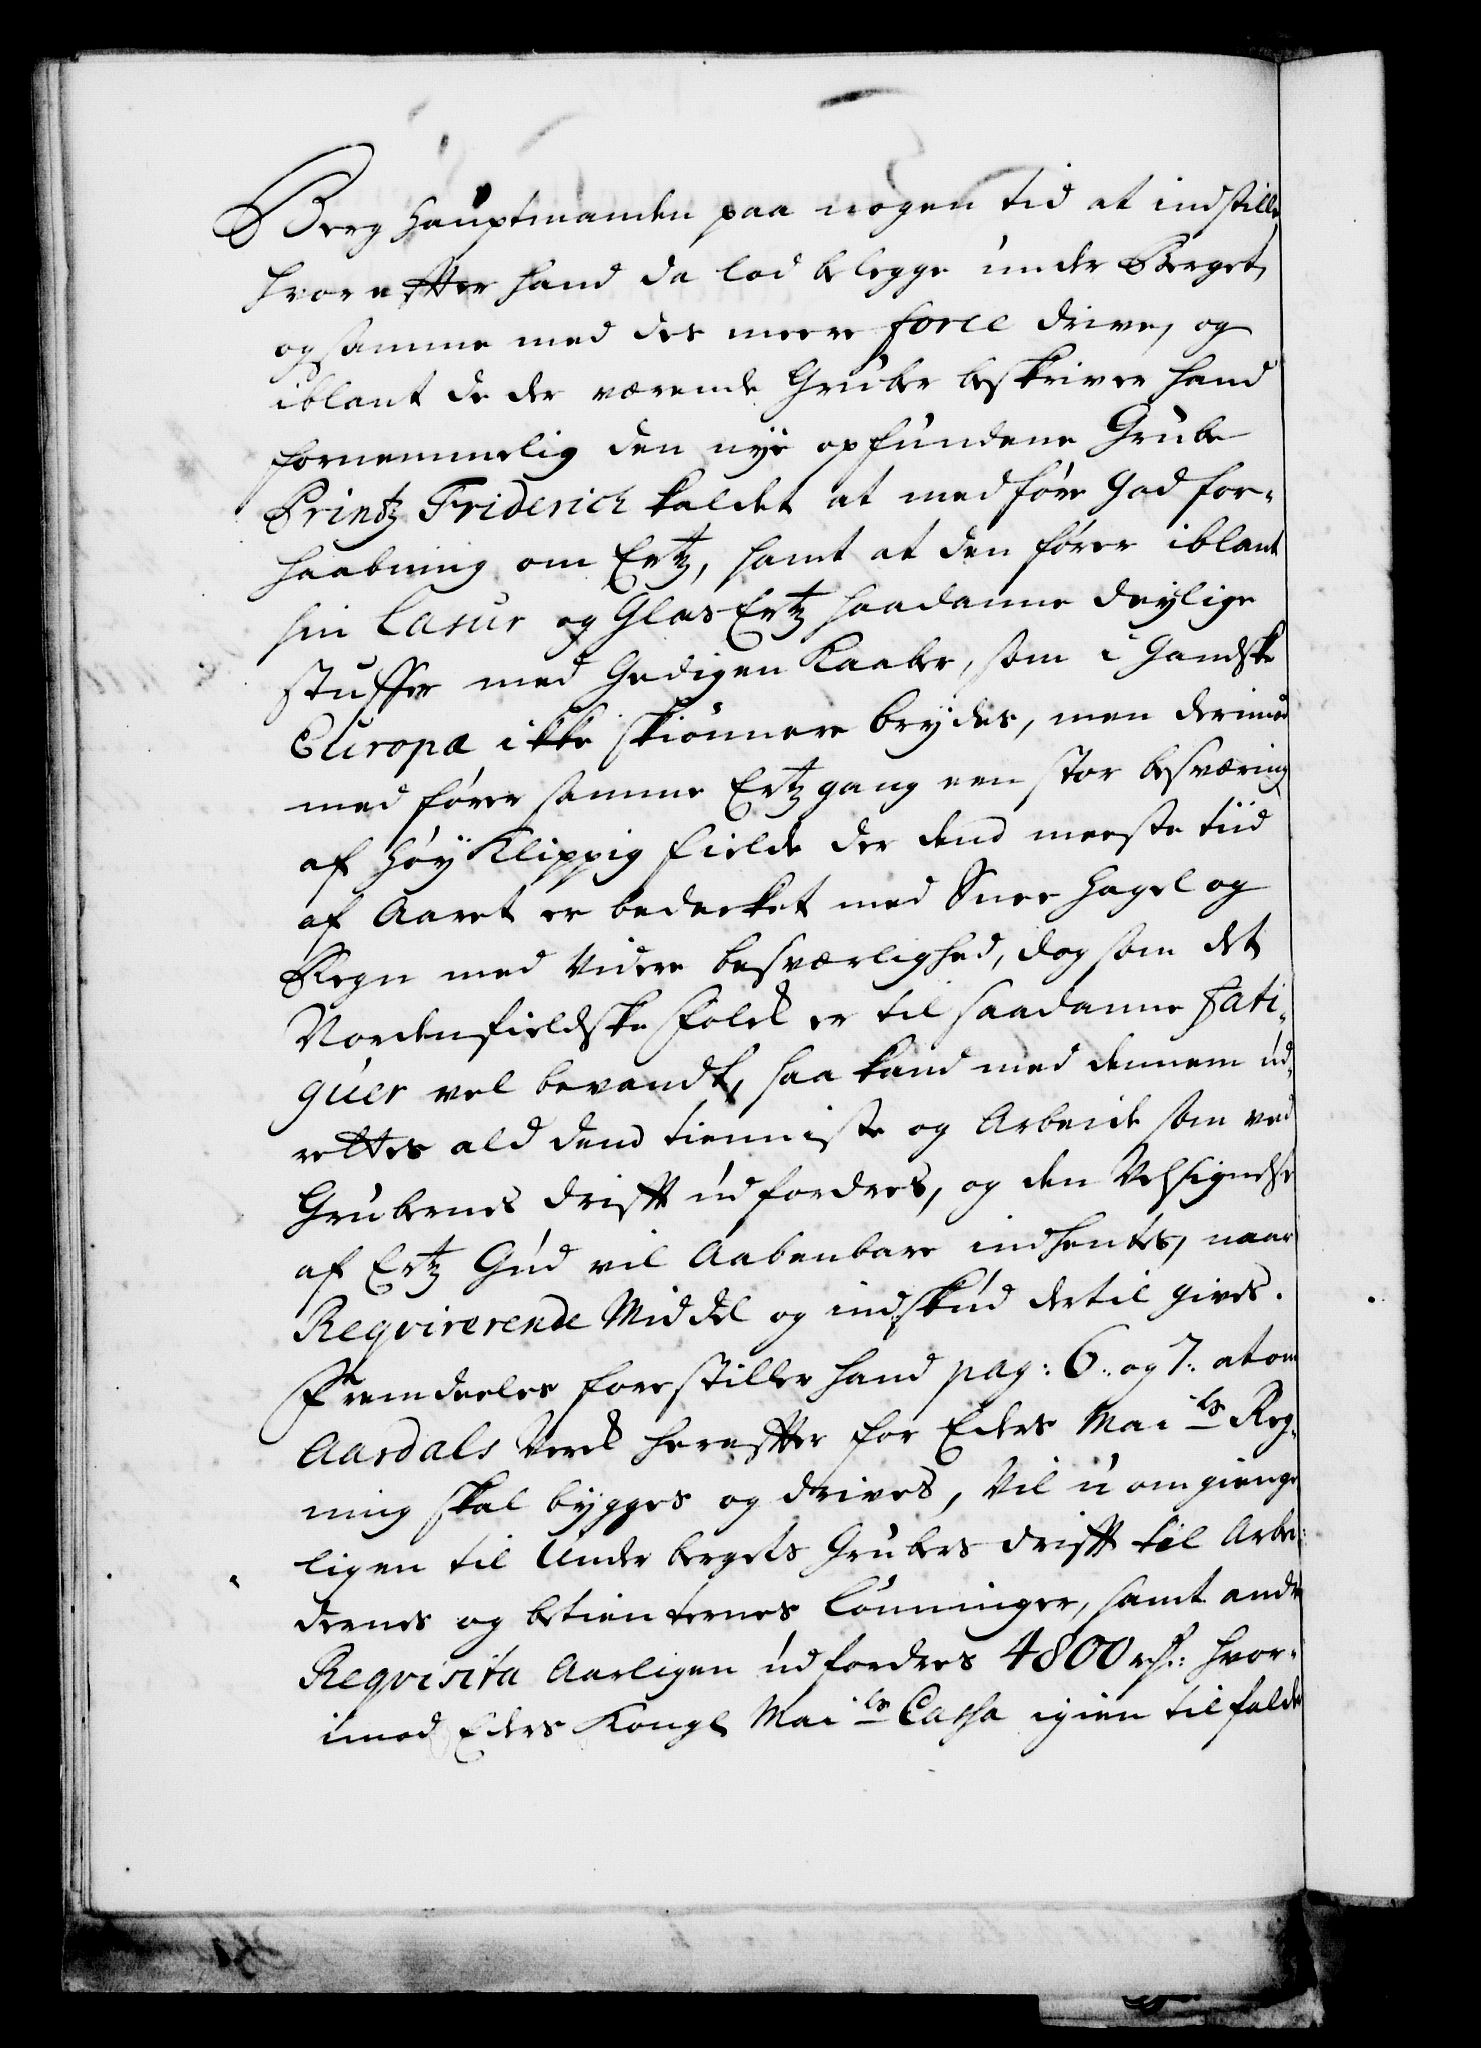 Berg Hauptmanden paa nogen tid at indstille,
hvor efter hand da lod belegge under Berget,
og samme med des meere force drive, og
iblant de der værende Gruber beskriver hand
fornemmelig den nye opfundene Grube
Printz Friderich kaldet at medføre God for-
haabning om Ertz, samt at den fører iblant
sin Lasur og Glas Ertz saadanne deylige
stuffer med Gedigen Kaaber, som i Gandske
Europa ikke skiønnere brydes, men derimod
med fører samme Ertzgang een stor besværing
af høy Klippig Fielde der dend meeste tiid
af Aaret er bedecket med Snee Hagel og
Regn med Videre besværlighed, dog som det
Nordenfieldske Folck er til saadanne Fati-
guer vel bevandt, saa kand med dennem ud-
rettes ald dend tienniste og Arbeide som ved
Grubernes drifft udfordres, og den Velsignelse
af Ertz Gud vil Aabenbare indhentes, naar
Reqvirerende Middel og indskud dertil gives.
Fremdeeles forestiller hand pag: 6. og 7. at om
Aardals Verck herefter for Eders Mai:ts Reg-
ning skal bygges og drives, Vil uomgienge
ligen til Under bergets Grubers drifft til Arbei-
dernes og betienternes Lønninger, samt andre
Reqvisita Aarligen udfordres 4800 rd:: hvor-
imod Eders Kongl Mai:ts Cassa igien tilfalde